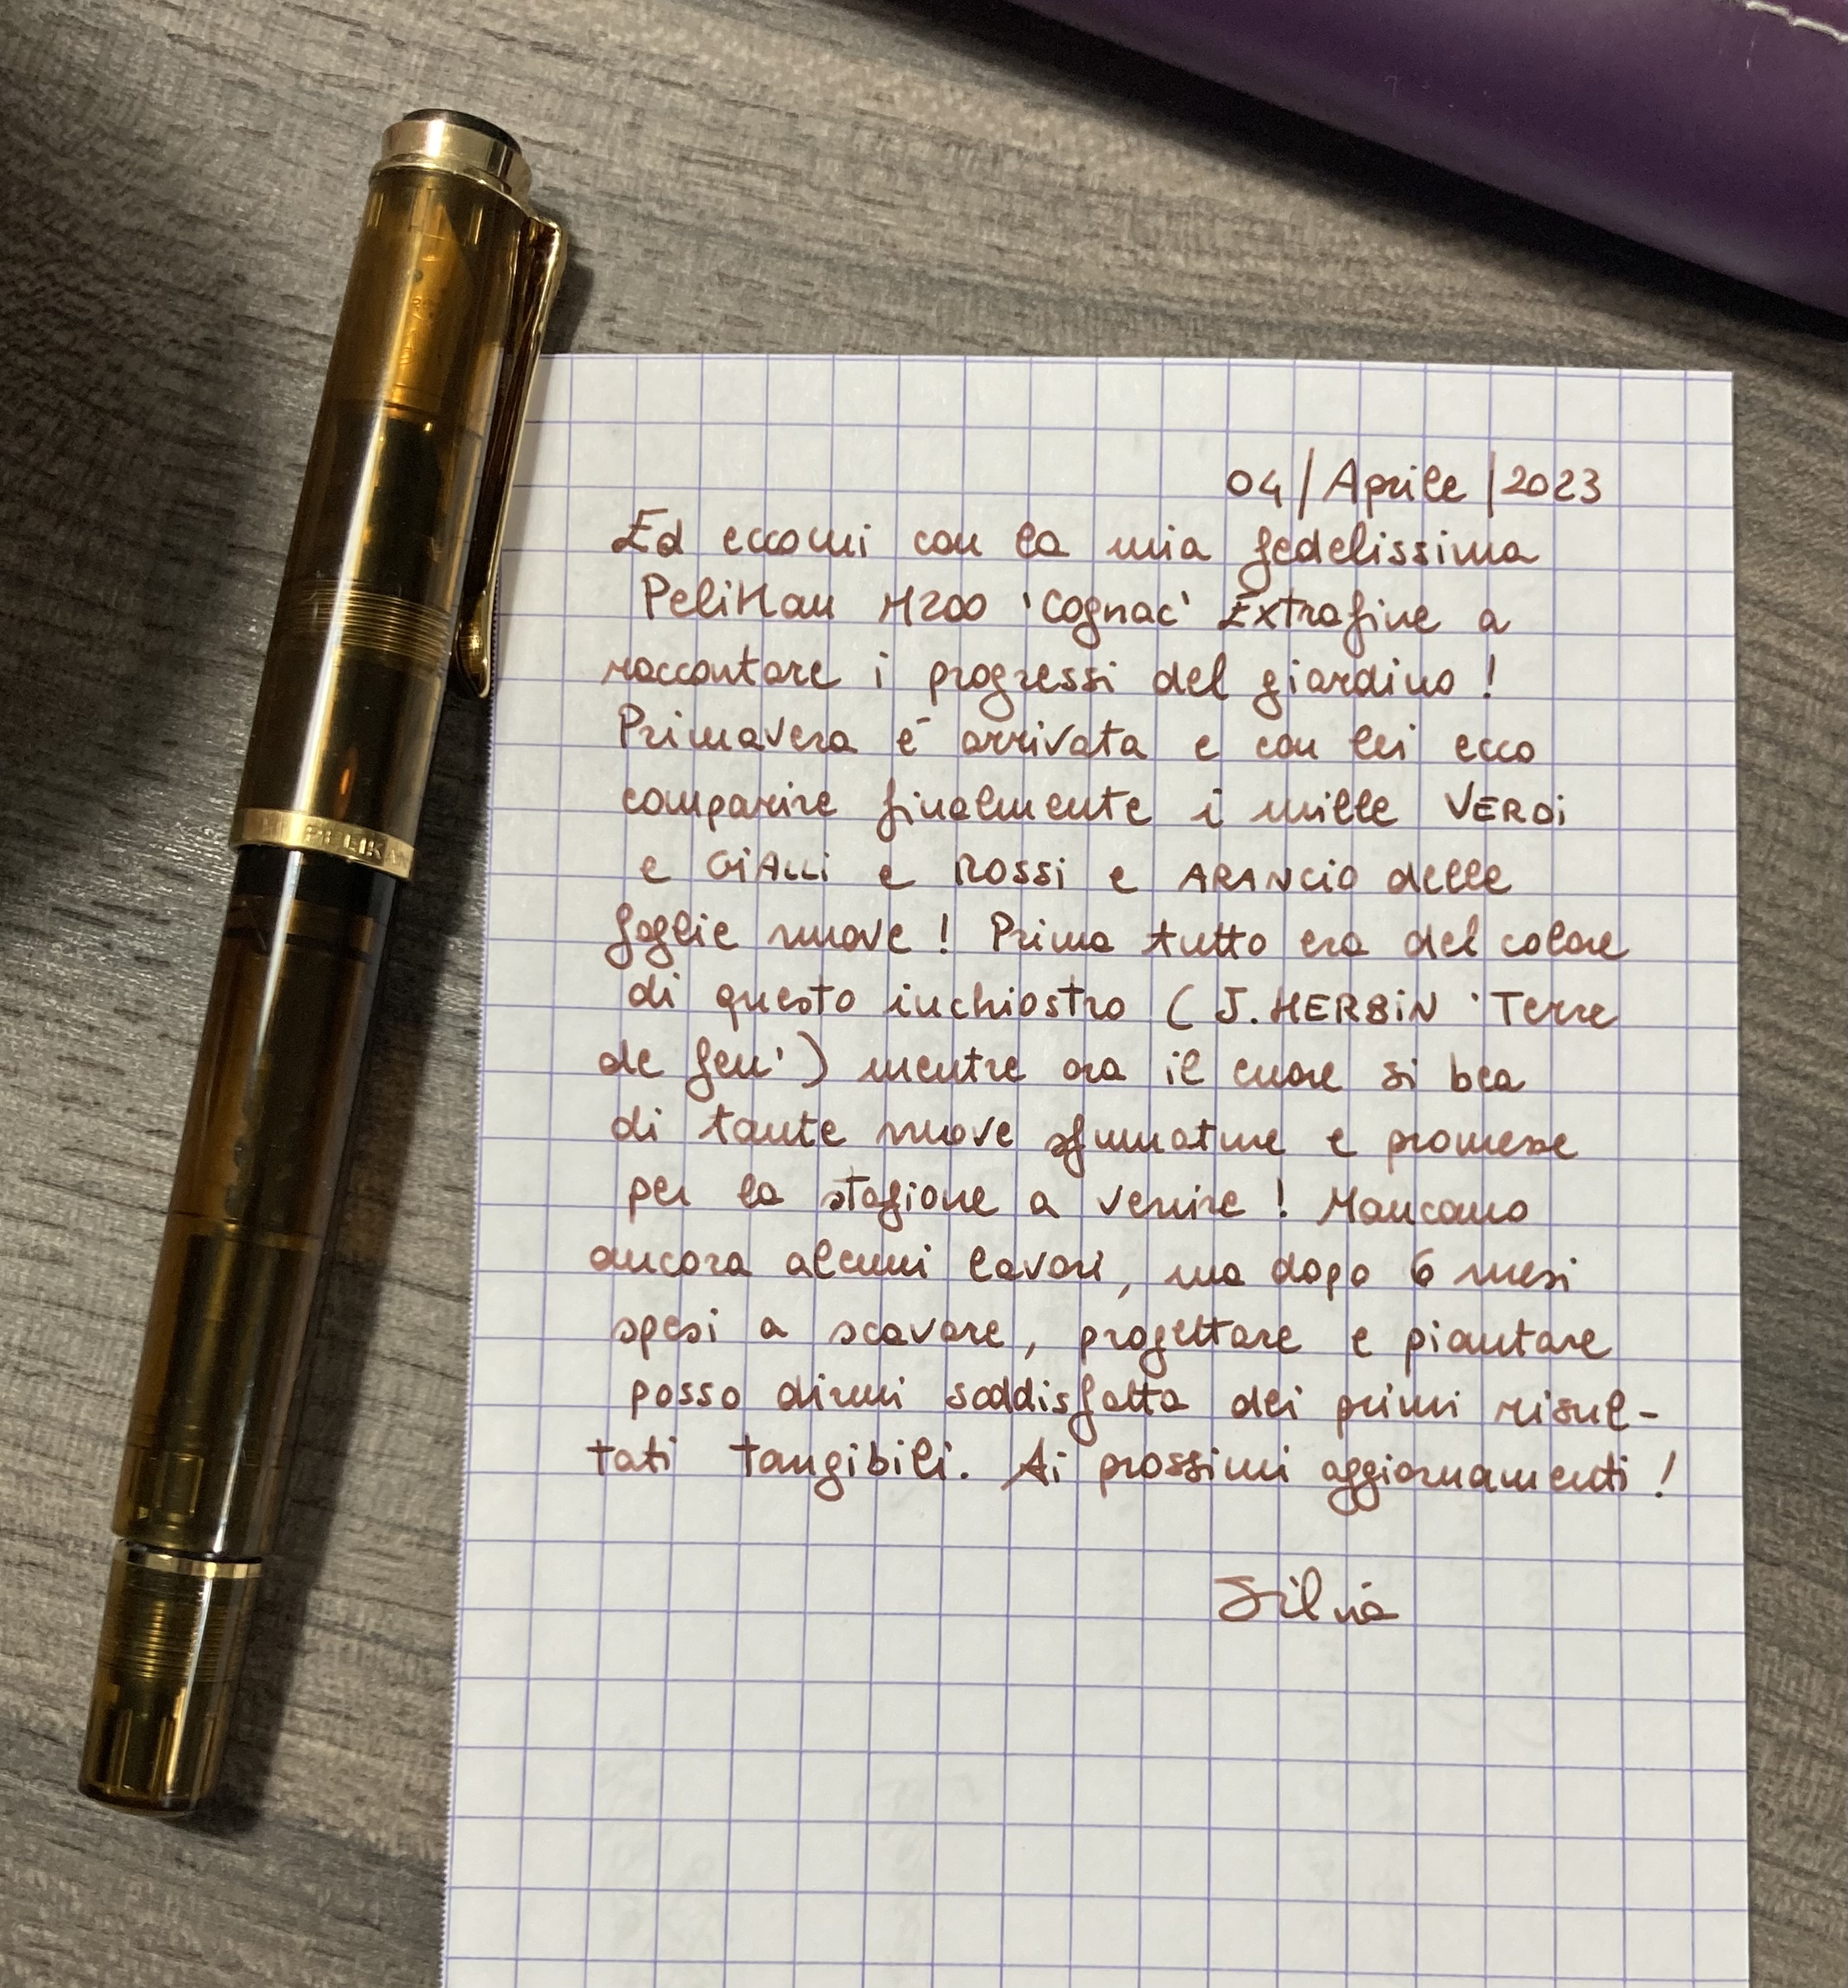 04/Aprile/2023
Ed eccomi con la mia fedelissima
Pelikan M200 'Cognac' Extrafine a
raccontare i progressi del giardino!
Primavera é arrivata e con lei ecco
comparire finalmente i mille VERDi
e GiALLi e ROSSi e ARANCiO delle
foglie nuove! Prima tutto era del colore
di questo inchiostro (J. HERBiN 'Terre
de feu') mentre ora il cuore si bea
di tante nuove sfumature e promesse
per la stagione a venire! Mancano
ancora alcuni lavori, ma dopo 6 mesi
spesi a scavare, progettare e piantare
posso dirmi soddisfatta dei primi risul-
tati tangibili. Ai prossimi aggiornamenti!
Silvia
PELIKAN